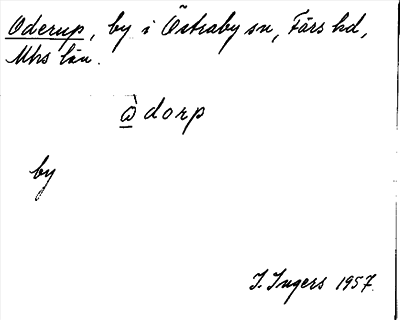 Oderup, by i Östraby sn, Färs hd,
Mhs län.
ὼdorp
by
I. Ingers 1957.